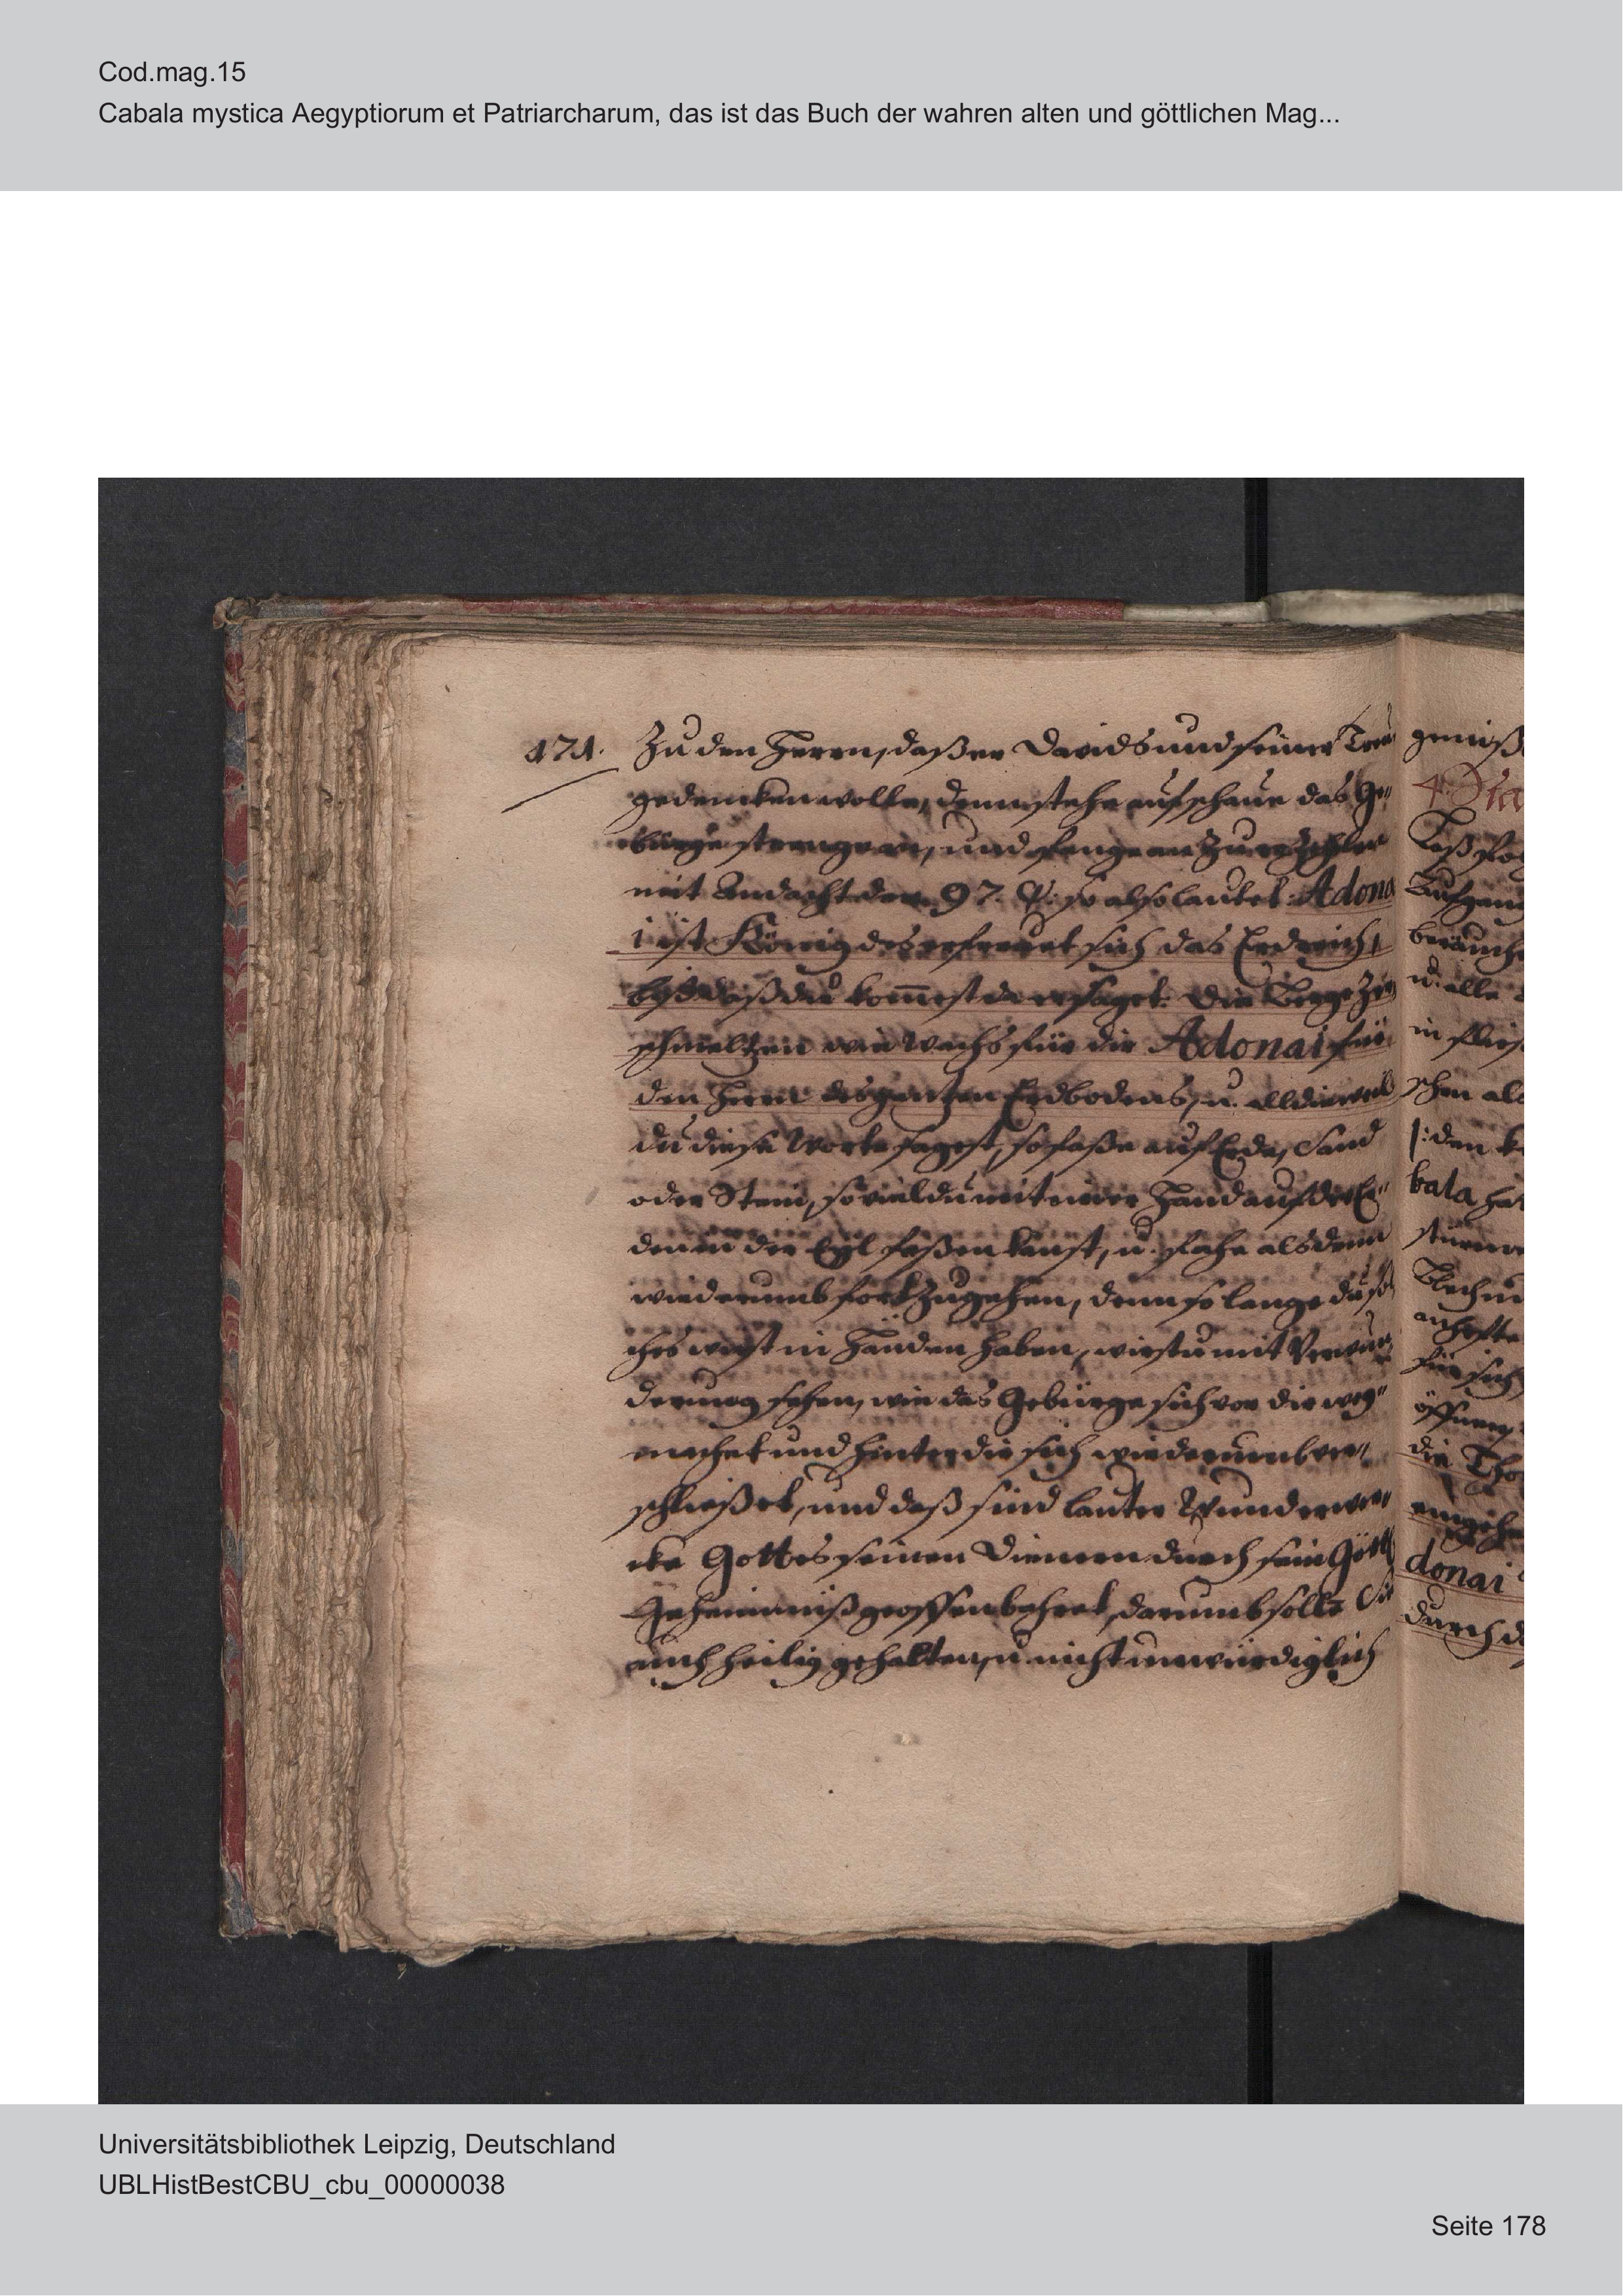 Cod.mag.15
Cabala mystica Aegyptiorum et Patriarcharum, das ist das Buch der wahren alten und göttlichen Mag...
171. Zu den Herrn, daß er Davids und seiner Treu
gedencken wolle, denn stehe auf schaue das Ge„
bürge strenge an, und fange an zu erzehlen
mit Andacht den 97. Ps: so also lautet: Adona
i ist König des erfreuet sich das Erdreich,
biß daß du kommest da er saget: Die Berge Zer
schmeltzen wie Wachs für dir Adonai für
den Herrn des gantzen Erdbodens, u. alldieweil
du diese Worte sagest, so faße auf Erde, Sand
oder Stein, so viel du mit einer Hand auf der Er„
den in der Eyl faßen kanst, u. fahe alsdenn
wiederumb fort zugehen, denn so lange du sol
ches wirst in Händen haben, wirstu mit Verwun„
derung sehen, wie das Gebürge sich vor dir weg„
machet und hinter dir sich wiederumb ver„
schließet, und daß sind lauter Wunderwer„
cke Gottes seinen Dienern durch sein Göttl
Geheimniß geoffenbahret, darumb solls Sie
auch heilig gehalten, u. nicht unwürdiglich
4. Die
Aufgang
u. alle
schen als
|: den
bala hat
öffnen
die Thor
eingehe
donai
durch
Universitätsbibliothek Leipzig, Deutschland
UBLHistBestCBU_cbu_00000038
Seite 178